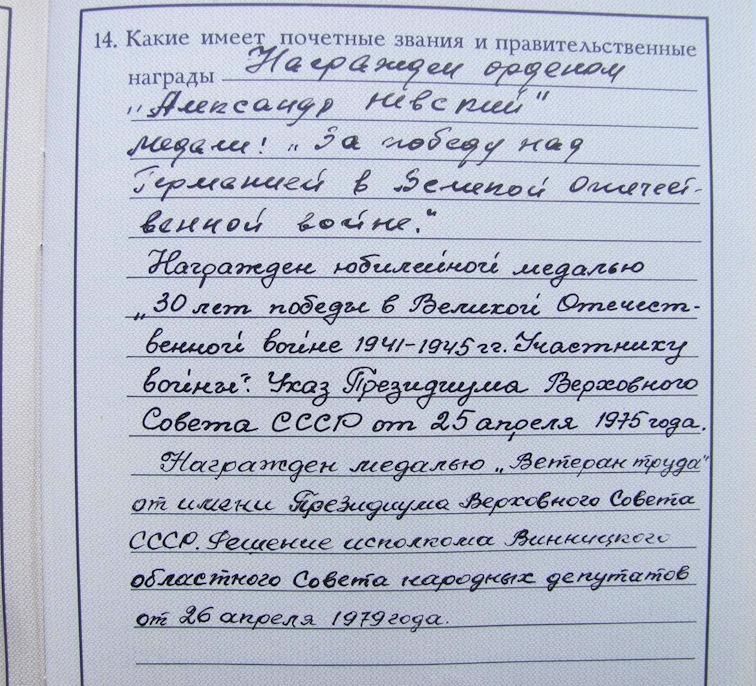 14. Какие имеет почетные звания и правительственные
награды Награжден орденом
„Александр Невский"
медали! „За победу над
Германией в Великой Отечест-
венной войне."
Награжден юбилейной медалью
„30 лет победы в Великой Отечест-
венной войне 1941-1945 гг. Участнику
войны". Указ Президиума Верховного
Совета СССР от 25 апреля 1975 года.
Награжден медалью „Ветеран труда"
от имени Президиума Верховного Совета
СССР. Решение исполкома Винницкого
областного Совета народных депутатов
от 26 апреля 1979 года.